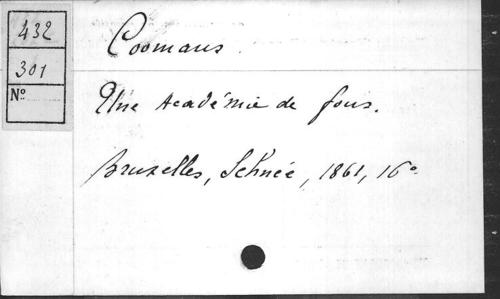 432
301
Nº
Coomans
Une Académie de fous.
Bruxelles, Schnée, 1861, 16º